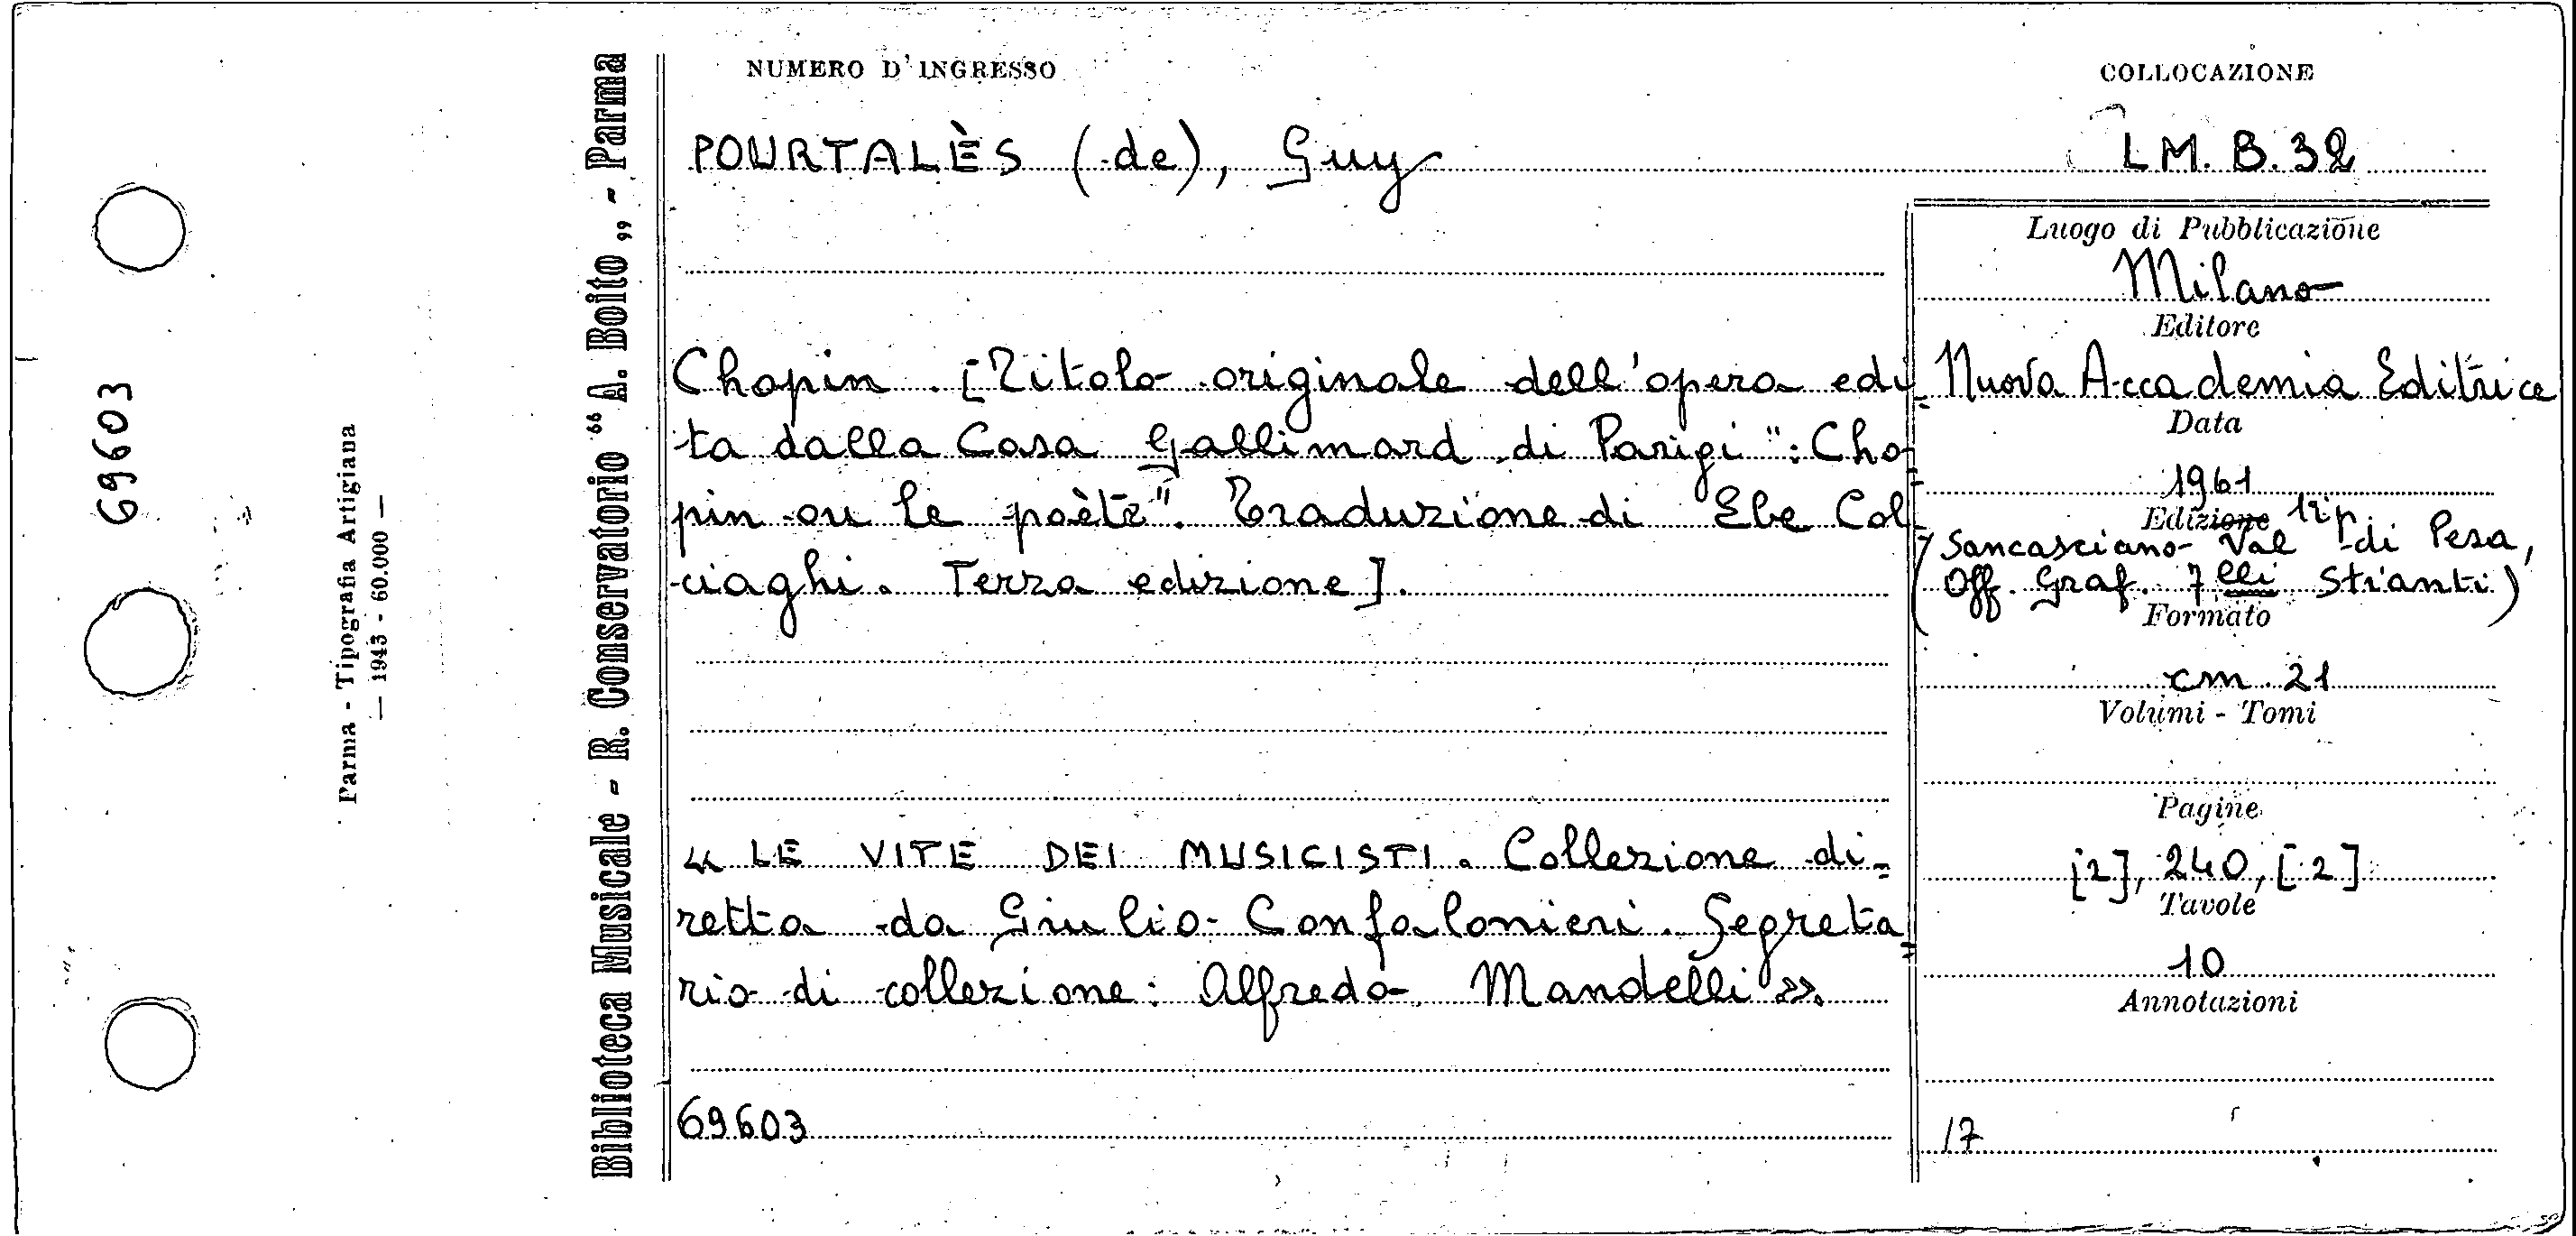 NUMERO D'INGRESSO
COLLOCAZIONE
POURTALÈS (de), Guy
LM. B. 32
Luogo di Pubblicazione
Milano
Editore
Nuova Accademia Editrice
Data
1961
Edizione Tip.
(Sancasciano Val di Pesa,
Off. Graf. F.lli Stianti)
Formato
cm. 21
Volumi - Tomi
Pagine
[2], 240, [2]
Tavole
10
Annotazioni
17
Chopin. [Titolo originale dell'opera edi-
ta dalla Casa Gallimard di Parigi": Cho-
pin ou le poète". Traduzione di Ebe Col-
ciaghi. Terza edizione].
« LE VITE DEI MUSICISTI. Collezione di-
retta da Giulio Confalonieri. Segreta-
rio di collezione: Alfredo Mandelli ».
69603
Biblioteca Musicale - R. Conservatorio "A. Boito„ - Parma
Parma - Tipografia Artigiana
— 1943 - 60.000 —
69603